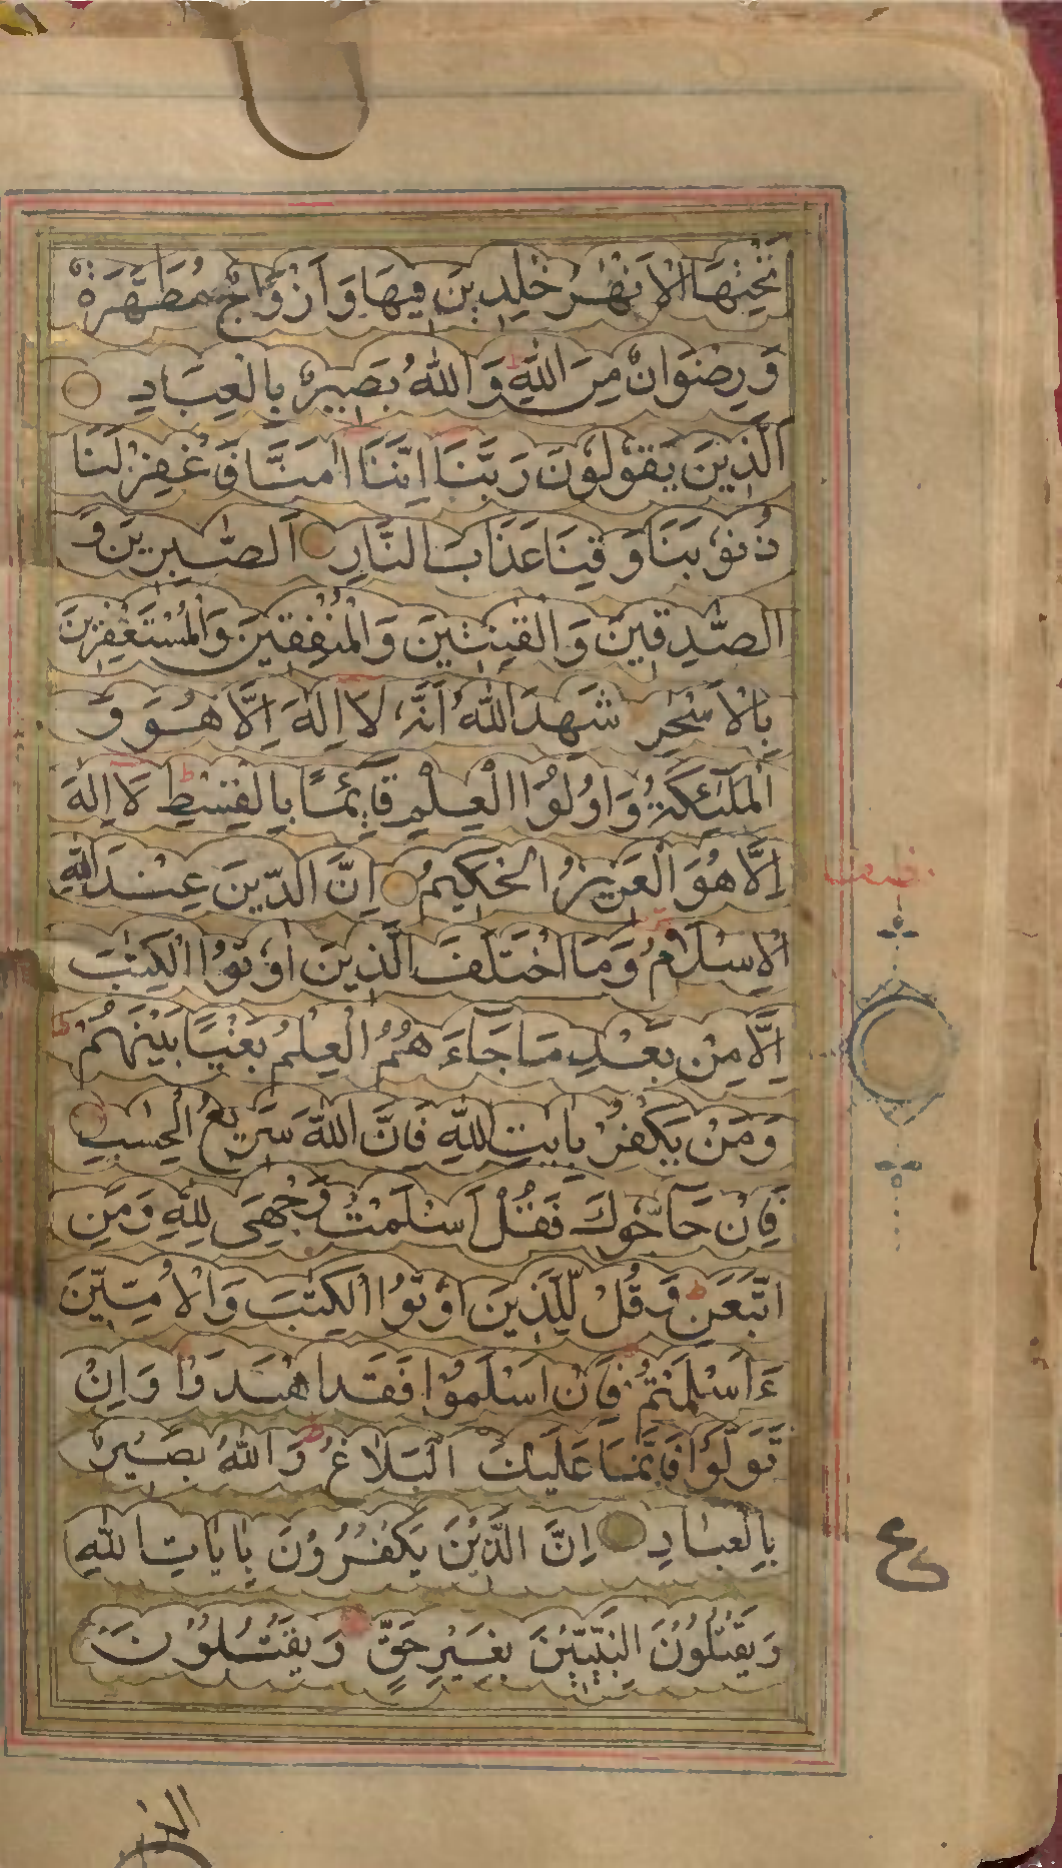 تَحْتِهَا الْاَنْهٰرُ خٰلِدِيْنَ فِيهَا وَاَزْوَاجٌ مُطَهَّرَةٌ
وَرِضْوَانٌ مِنَ اللّٰهِ وَاللّٰهُ بَصِيرٌ بِالْعِبَادِ
اَلَّذِينَ يَقُولُونَ رَبَّنَا اِنَّنَا اٰمَنَّا فَغْفِرْ لَنَا
ذُنُوبَنَا وَقِنَا عَذَابَ النَّارِ اَلصّٰبِرِينَ وَ
الصّٰدِقِينَ وَالْقٰنِتِينَ وَالْمُنْفِقِينَ وَالْمُسْتَغْفِرِينَ
بِالْاَسْحٰرِ شَهِدَ اللّٰهُ اَنَّهُ لَا اِلٰهَ اِلَّا هُوَ وَ
الْمَلٰئِكَةُ وَاُولُوا الْعِلْمِ قَائِمًا بِالْقِسْطِ لَا اِلٰهَ
اِلَّا هُوَ الْعَزِيزُ الْحَكِيمُ اِنَّ الدِّينَ عِنْدَ اللّٰهِ
الْاِسْلَامُ وَمَا اخْتَلَفَ الَّذِينَ اُوتُوا الْكِتٰبَ
اِلَّا مِنْ بَعْدِ مَا جَاءَ هُمُ الْعِلْمُ بَغْيًا بَيْنَهُمْ
وَمَنْ يَكْفُرْ بِاٰيٰتِ اللّٰهِ فَاِنَّ اللّٰهَ سَرِيعُ الْحِسٰبِ
فَاِنْ حَآجُّوكَ فَقُلْ اَسْلَمْتُ وَجْهِيَ لِلّٰهِ وَمَنِ
اتَّبَعَنِ وَقُلْ لِلَّذِينَ اُوتُوا الْكِتٰبَ وَالْاُمِّيِّينَ
ءَاَسْلَمْتُمْ فَاِنْ اَسْلَمُوا فَقَدِ اهْتَدَوْا وَاِنْ
تَوَلَّوْا فَاِنَّمَا عَلَيْكَ الْبَلَاغُ وَاللّٰهُ بَصِيرٌ
بِالْعِبَادِ اِنَّ الَّذِيْنَ يَكْفُرُوْنَ بِاٰيَاتِ اللّٰهِ
وَيَقْتُلُوْنَ النَّبِيّٖنَ بِغَيْرِ حَقٍّ وَيَقْتُلُوْنَ
ع